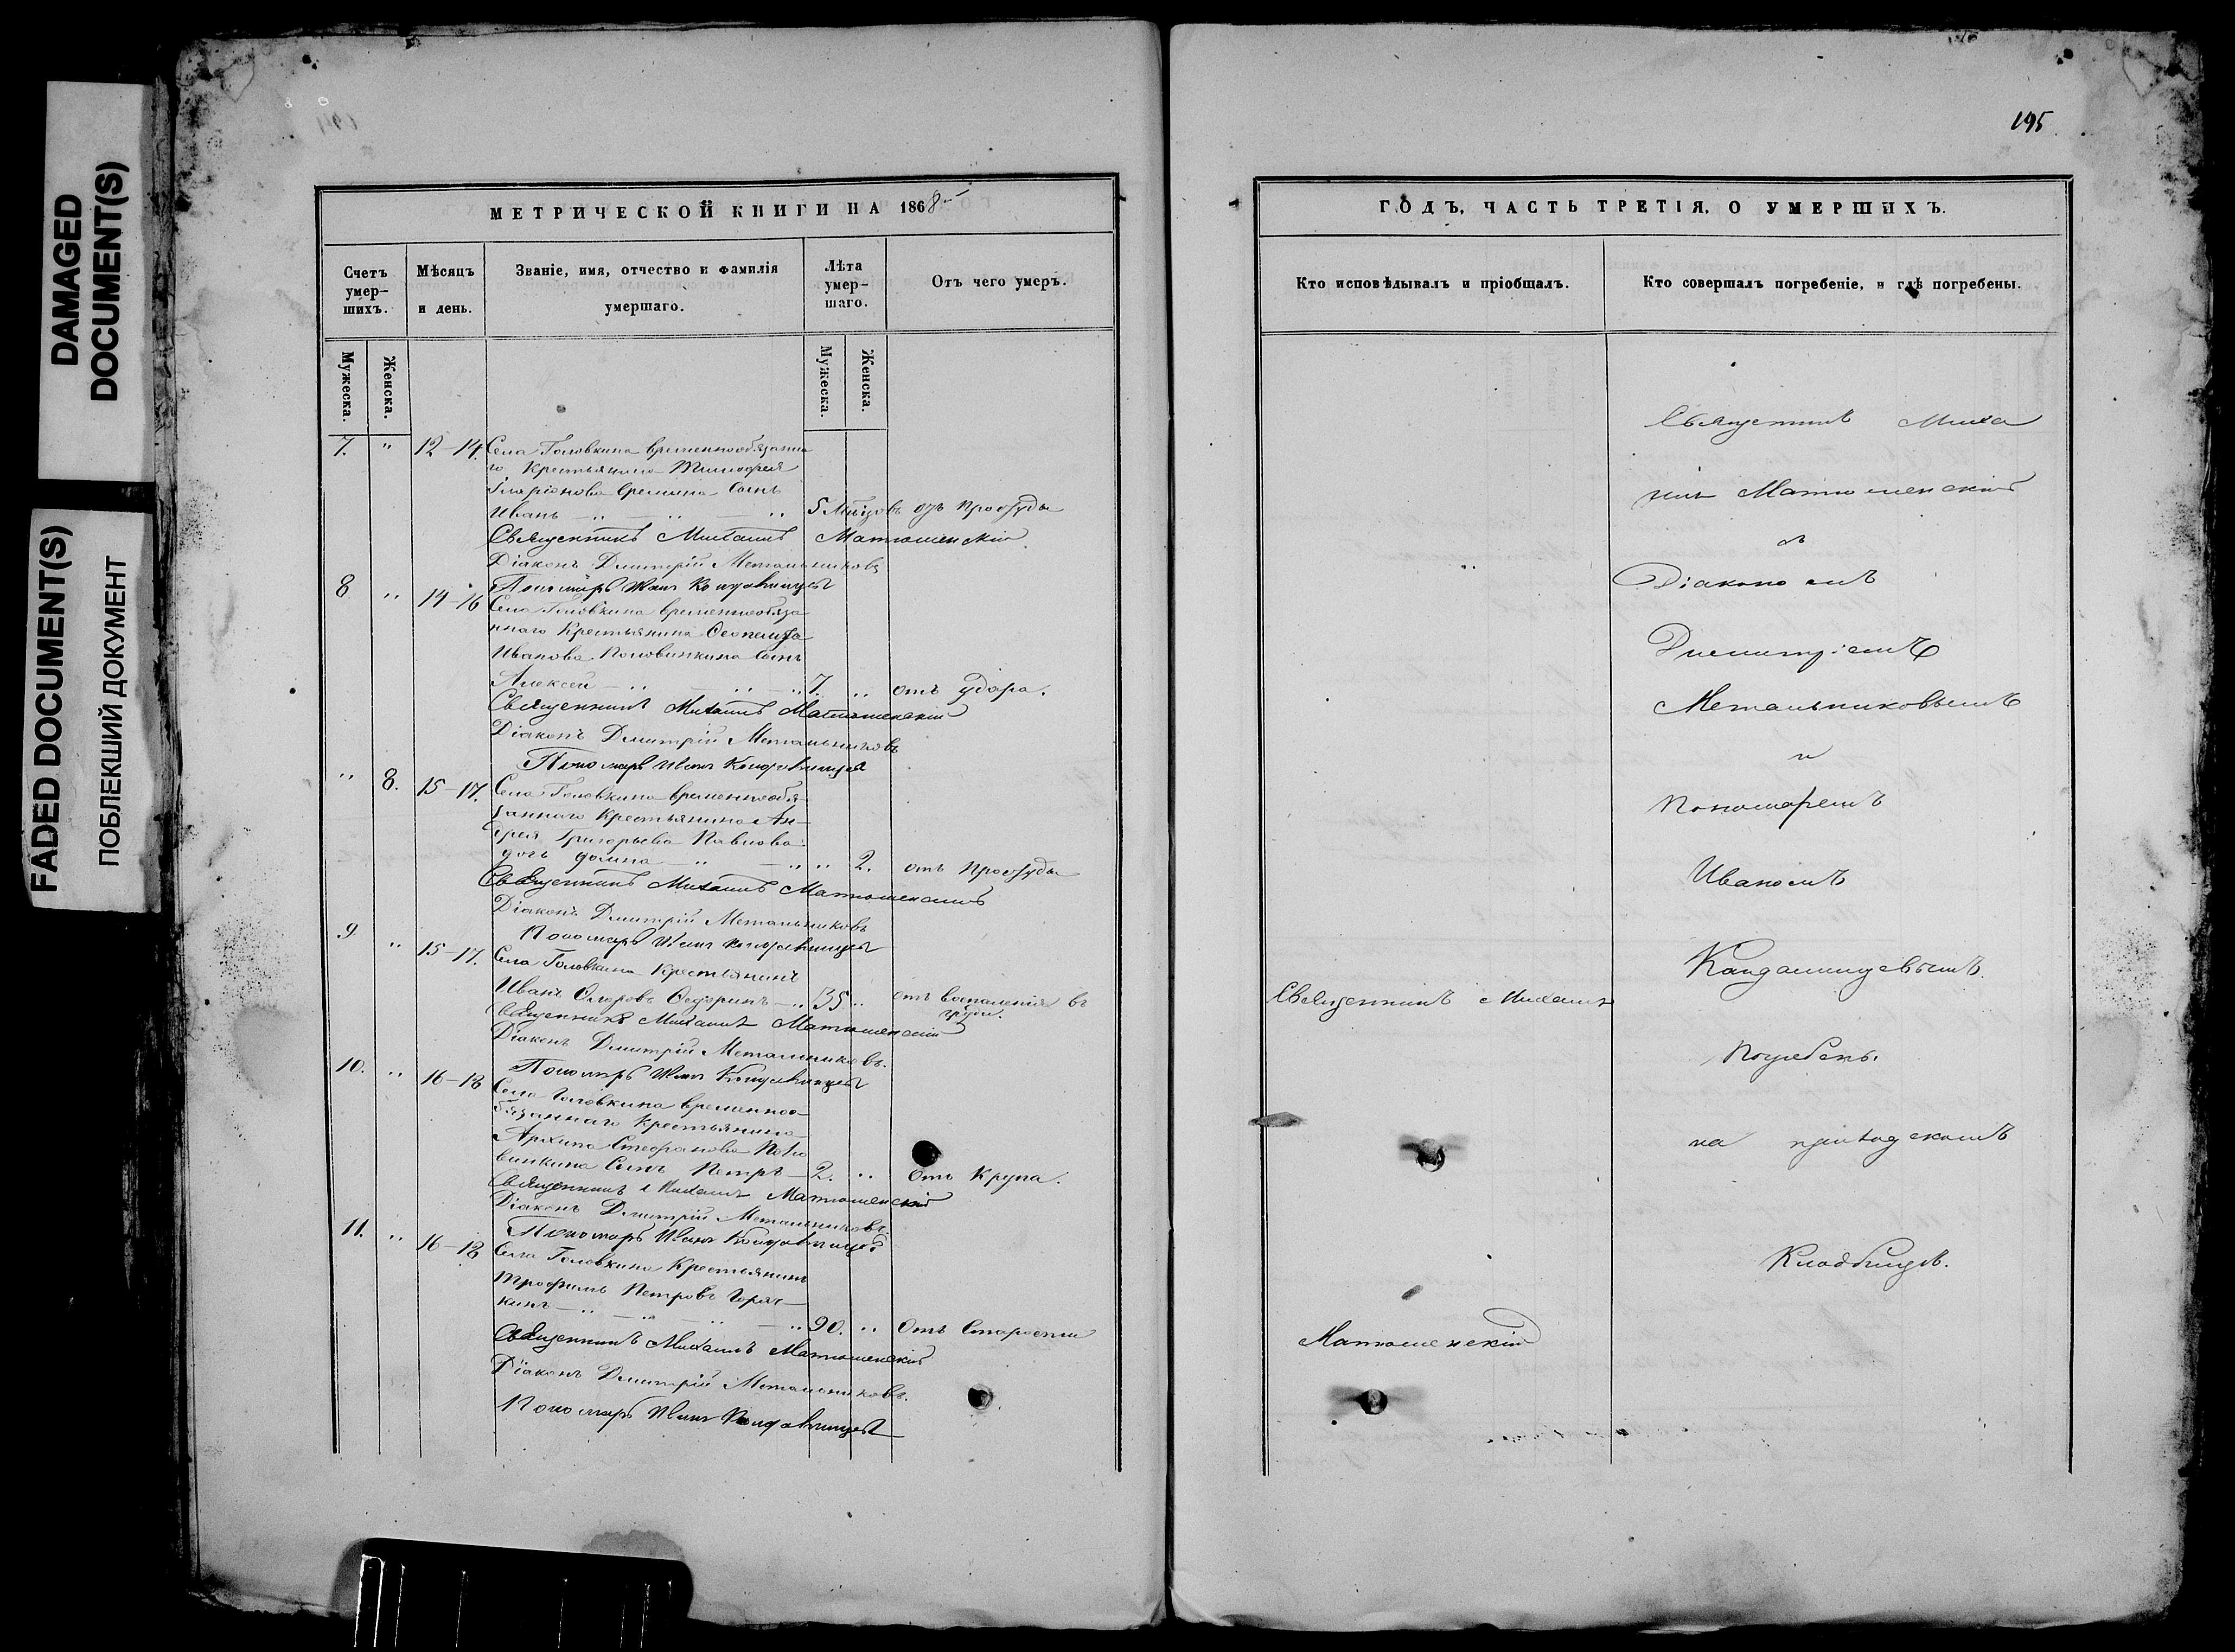 DAMAGED
DOCUMENT(S)
FADED DOCUMENT(S)
ПОБЛЕКШИЙ ДОКУМЕНТ
МЕТРИЧЕСКОЙ КНИГИ НА 1868
Счетъ умер-шихъ.
Мѣсяцъ и день.
Званіе, имя, отчество и фамилія умершаго.
Лѣта умер-шаго.
Отъ чего умеръ.
Мужеска.
Женска.
Мужеска.
Женска.
7. " 12-14. Села Головкина временнообязанна
го Крестьянина Тимофея
Иларіонова Еремина Сынъ
Иванъ 5 Мѣсяцовъ отъ Простуды
Священникъ Михаилъ Матюшенскій
Діаконъ Дмитрій Метальниковъ
Пономарь Иванъ
8 " 14-16 Села Головкина временнообяза
ннаго Крестьянина
Иванова Половинкина Сынъ
Алексей 7. " отъ удара.
Священникъ Михаилъ Матюшенскій
Діаконъ Дмитрій Метальниковъ
Пономарь Иванъ
" 8. 15-17. Села Головкина временнообя-
заннаго Крестьянина Ан-
дрея Григорьева Павлова
дочь Домна " 2. отъ Простуды
Священникъ Михаилъ Матюшенскій
Діаконъ Дмитрій Метальниковъ
Пономарь Иванъ
9 " 15-17. Села Головкина Крестьянинъ
Иванъ 35 " отъ воспаленія въ
груди.
Священникъ Михаилъ Матюшенскій
Діаконъ Дмитрій Метальниковъ.
Пономарь Иванъ
10. " 16-18 Села Головкина временноо-
бязаннаго Крестьянина
Архипа Стефанова Поло
винкина Сынъ Петръ 2. " Отъ Крупа.
Священникъ Михаилъ Матюшенскій
Діаконъ Дмитрій Метальниковъ
Пономарь Иванъ
11. " 16-18 Села Головкина Крестьянинъ
Трофимъ Петровъ Горяч-
кинъ 90. " Отъ Старости
Священникъ Михаилъ Матюшенскій
Діаконъ Дмитрій Метальниковъ.
Пономарь Иванъ
195
ГОДЪ, ЧАСТЬ ТРЕТІЯ, О УМЕРШИХЪ.
Кто исповѣдывалъ и пріобщалъ.
Кто совершалъ погребеніе, и гдѣ погребены.
Священникъ Михаилъ
Матюшенскій
Священникъ Миха
илъ Матюшенскій
съ
Діакономъ
Димитріемъ
Метальниковымъ
и
Пономаремъ
Иваномъ
Погребены
на приходскомъ
Кладбищѣ.